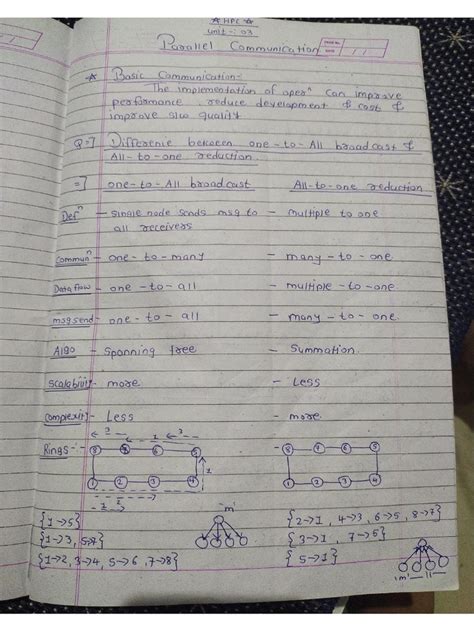 * HPC *
Unit - 03
Parallel Communication
* Basic Communication:-
The implementation of opern can improve
performance, reduce development & cost &
improve s/w quality
Q⇒ Differenie between one-to-All broadcast &
All-to-one reduction.
⇒ one-to-All broadcast All-to-one reduction
Defn - single node sends msg to - multiple to one
all receivers
Communn - one-to-many - many-to-one
Data flow - one-to-all - multiple-to-one
msg send - one-to-all - many-to-one
Algo - Spanning tree - Summation
Scalability - more - Less
Complexity - Less - more
Rings:-
3 2 3
8 7 6 5 8 7 6 5
1 2 3 4 1 2 3 4
'm'
{1→5} {2→1, 4→3, 6→5, 8→7}
{1→3, 5→7} {3→1, 7→5}
{1→2, 3→4, 5→6, 7→8} {5→1}
'm'